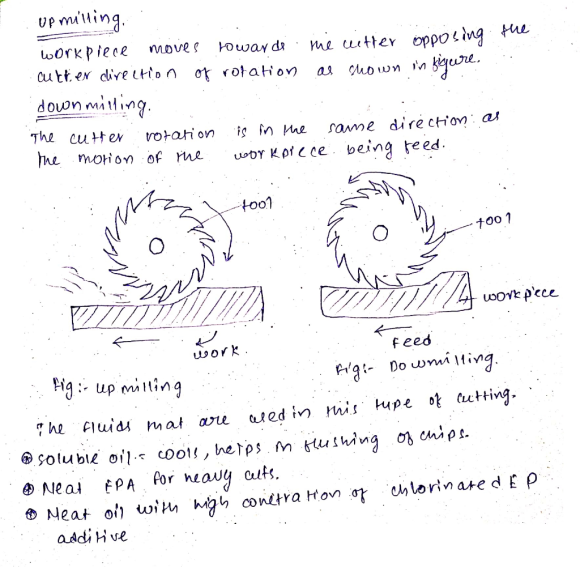 up milling.
workpiece moves towards the cutter opposing the
cutter direction of rotation as shown in figure.
down milling.
The cutter rotation is in the same direction as
the motion of the workpiece being feed.
tool
tool
workpiece
work.
Feed
Fig:- up milling
Fig:- Downmilling.
The fluids that are used in this type of cutting.
⊕ soluble oil:- cools, helps in flushing of chips.
⊕ Neat EPA for heavy cuts.
⊕ Neat oil with high conctration of chlorinated EP
additive